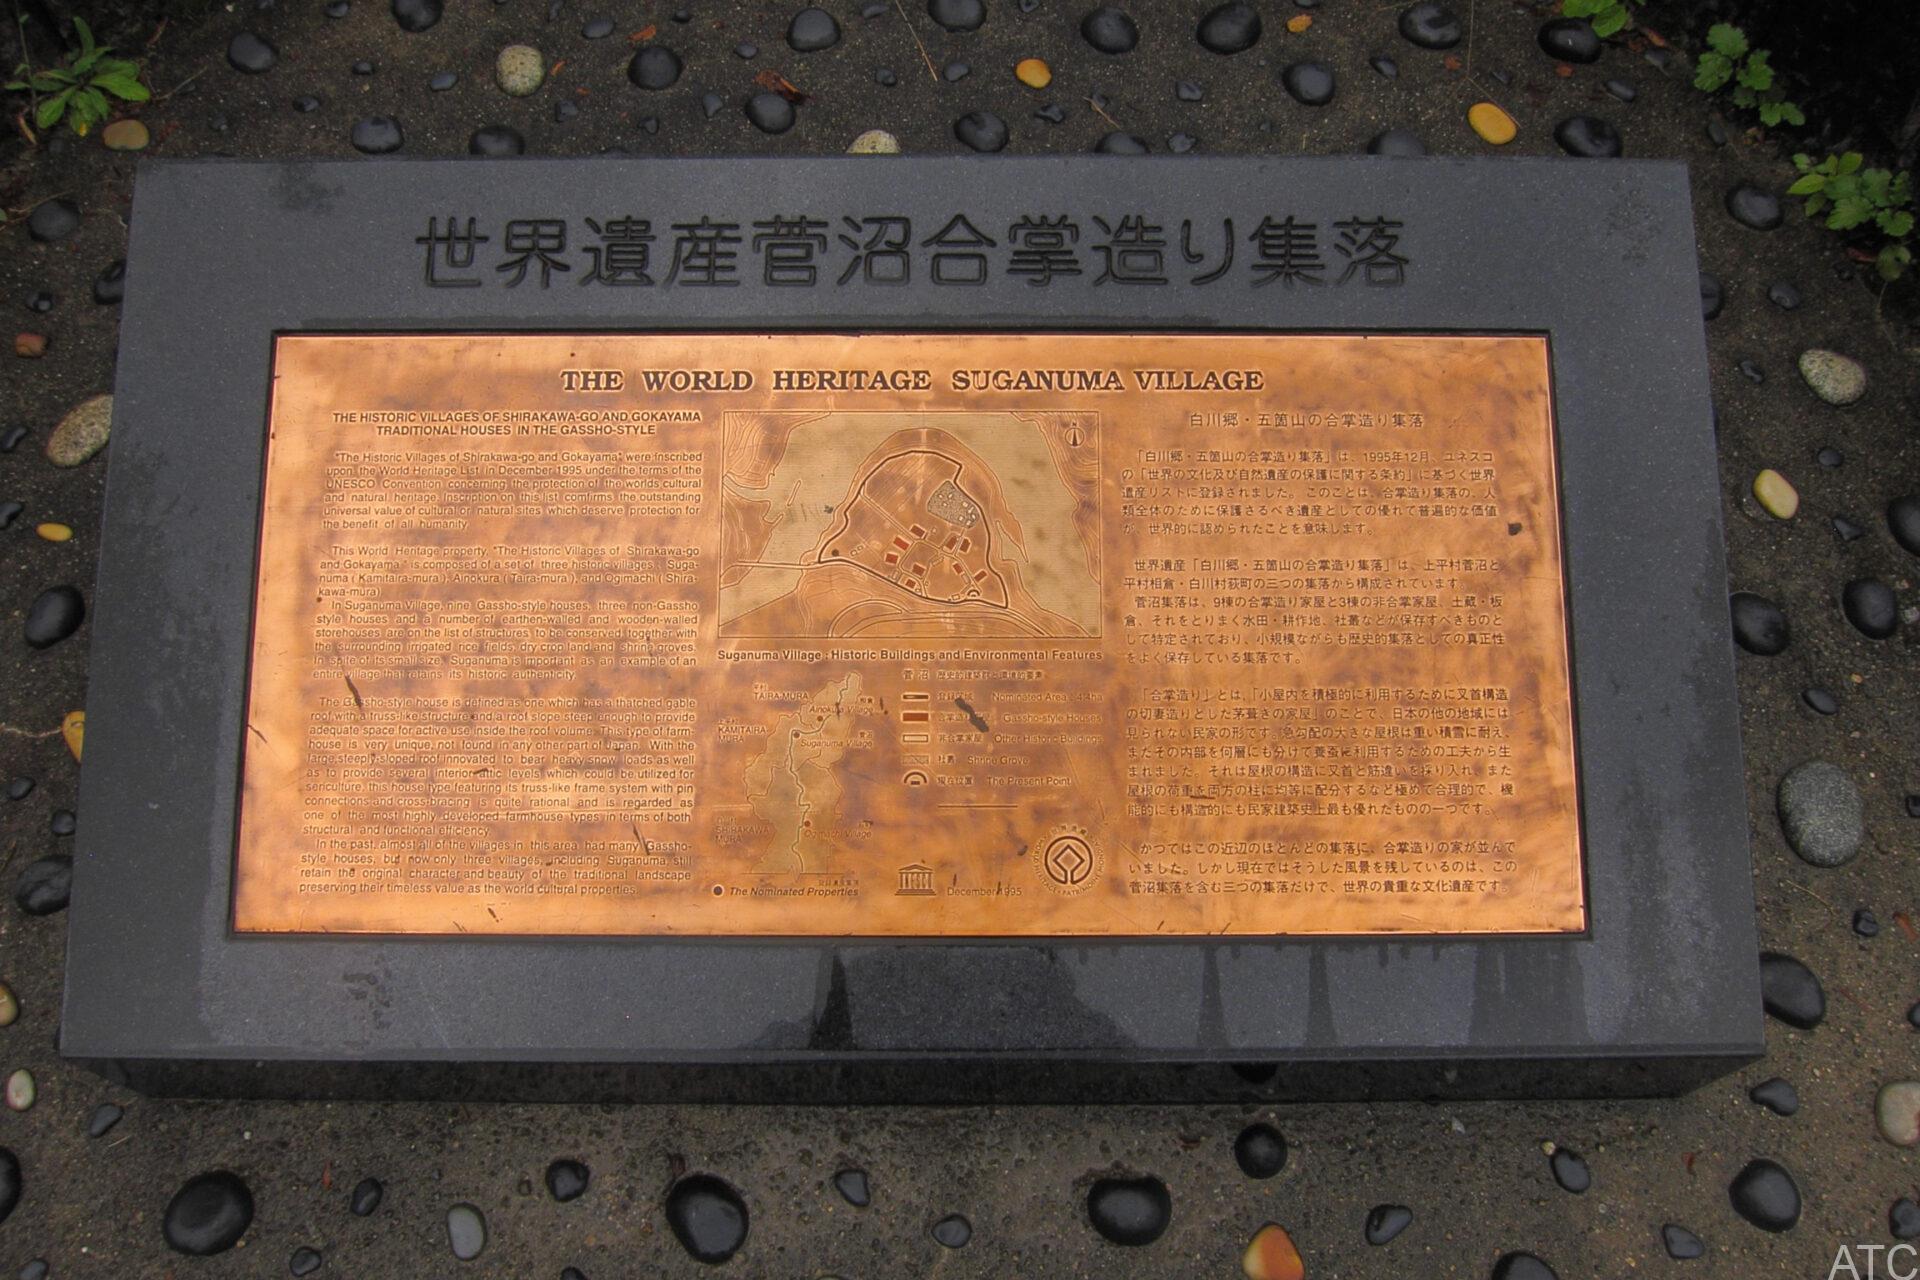 世界遺産菅沼合掌造り集落
THE WORLD HERITAGE SUGANUMA VILLAGE
THE HISTORIC VILLAGES OF SHIRAKAWA-GO AND GOKAYAMA
TRADITIONAL HOUSES IN THE GASSHO-STYLE
"The Historic Villages of Shirakawa-go and Gokayama" were inscribed
upon the World Heritage List in December 1995 under the terms of the
UNESCO Convention concerning the protection of the worlds cultural
and natural heritage. Inscription on this list comfirms the outstanding
universal value of cultural or natural sites which deserve protection for
the benefit of all humanity.
This World Heritage property, "The Historic Villages of Shirakawa-go
and Gokayama" is composed of a set of three historic villages : Suga-
numa ( Kamitaira-mura ), Ainokura ( Taira-mura ), and Ogimachi ( Shira-
kawa-mura)
In Suganuma Village, nine Gassho-style houses, three non-Gassho
style houses and a number of earthen-walled and wooden-walled
storehouses are on the list of structures to be conserved together with
the surrounding irrigated rice fields, dry crop land and shrine groves.
In spite of its small size, Suganuma is important as an example of an
entire village that retains its historic authenticity.
The Gassho-style house is defined as one which has a thatched gable
roof with a truss-like structure and a roof slope steep enough to provide
adequate space for active use inside the roof volume. This type of farm-
house is very unique, not found in any other part of Japan. With the
large steeply-sloped roof innovated to bear heavy snow loads as well
as to provide several interior attic levels which could be utilized for
sericulture, this house type featuring its truss-like frame system with pin
connections and cross-bracing is quite rational and is regarded as
one of the most highly developed farmhouse types in terms of both
structural and functional efficiency.
In the past, almost all of the villages in this area had many Gassho-
style houses, but now only three villages, including Suganuma, still
retain the original character and beauty of the traditional landscape
preserving their timeless value as the world cultural properties.
N
Suganuma Village : Historic Buildings and Environmental Features
菅沼 歴史的建築群・環境的要素
登録区域 Nominated Area
Gassho-style Houses
非合掌家屋 Other Historic Buildings
社叢 Shrine Grove
現在位置 The Present Point
平村
TAIRA-MURA
相倉
Ainokura Village
上平村
KAMITAIRA-
MURA
菅沼
Suganuma Village
白川村
SHIRAKAWA
MURA
荻町
Ogimachi Village
登録遺産集落
The Nominated Properties
December 1995
白川郷・五箇山の合掌造り集落
「白川郷・五箇山の合掌造り集落」は、1995年12月、ユネスコ
の「世界の文化及び自然遺産の保護に関する条約」に基づく世界
遺産リストに登録されました。このことは、合掌造り集落の、人
類全体のために保護さるべき遺産としての優れて普遍的な価値
が、世界的に認められたことを意味します。
世界遺産「白川郷・五箇山の合掌造り集落」は、上平村菅沼と
平村相倉・白川村荻町の三つの集落から構成されています。
菅沼集落は、9棟の合掌造り家屋と3棟の非合掌家屋、土蔵・板
倉、それをとりまく水田・耕作地、社叢などが保存すべきものと
して特定されており、小規模ながらも歴史的集落としての真正性
をよく保存している集落です。
「合掌造り」とは、「小屋内を積極的に利用するために叉首構造
の切妻造りとした茅葺きの家屋」のことで、日本の他の地域には
見られない民家の形です。急勾配の大きな屋根は重い積雪に耐え、
またその内部を何層にも分けて養蚕に利用するための工夫から生
まれました。それは屋根の構造に叉首と筋違いを採り入れ、また
屋根の荷重を両方の柱に均等に配分するなど極めて合理的で、機
能的にも構造的にも民家建築史上最も優れたものの一つです。
かつてはこの近辺のほとんどの集落に、合掌造りの家が並んで
いました。しかし現在ではそうした風景を残しているのは、この
菅沼集落を含む三つの集落だけで、世界の貴重な文化遺産です。
ATC